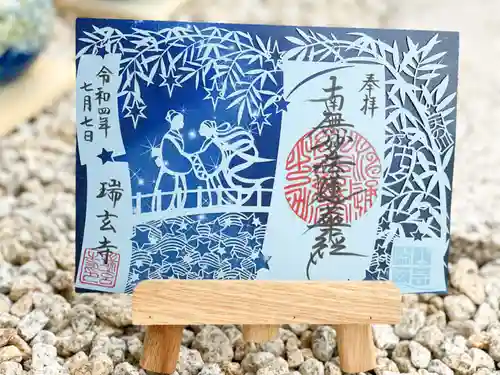 奉拝
南無妙法蓮華経
令和四年
七月七日
瑞玄寺